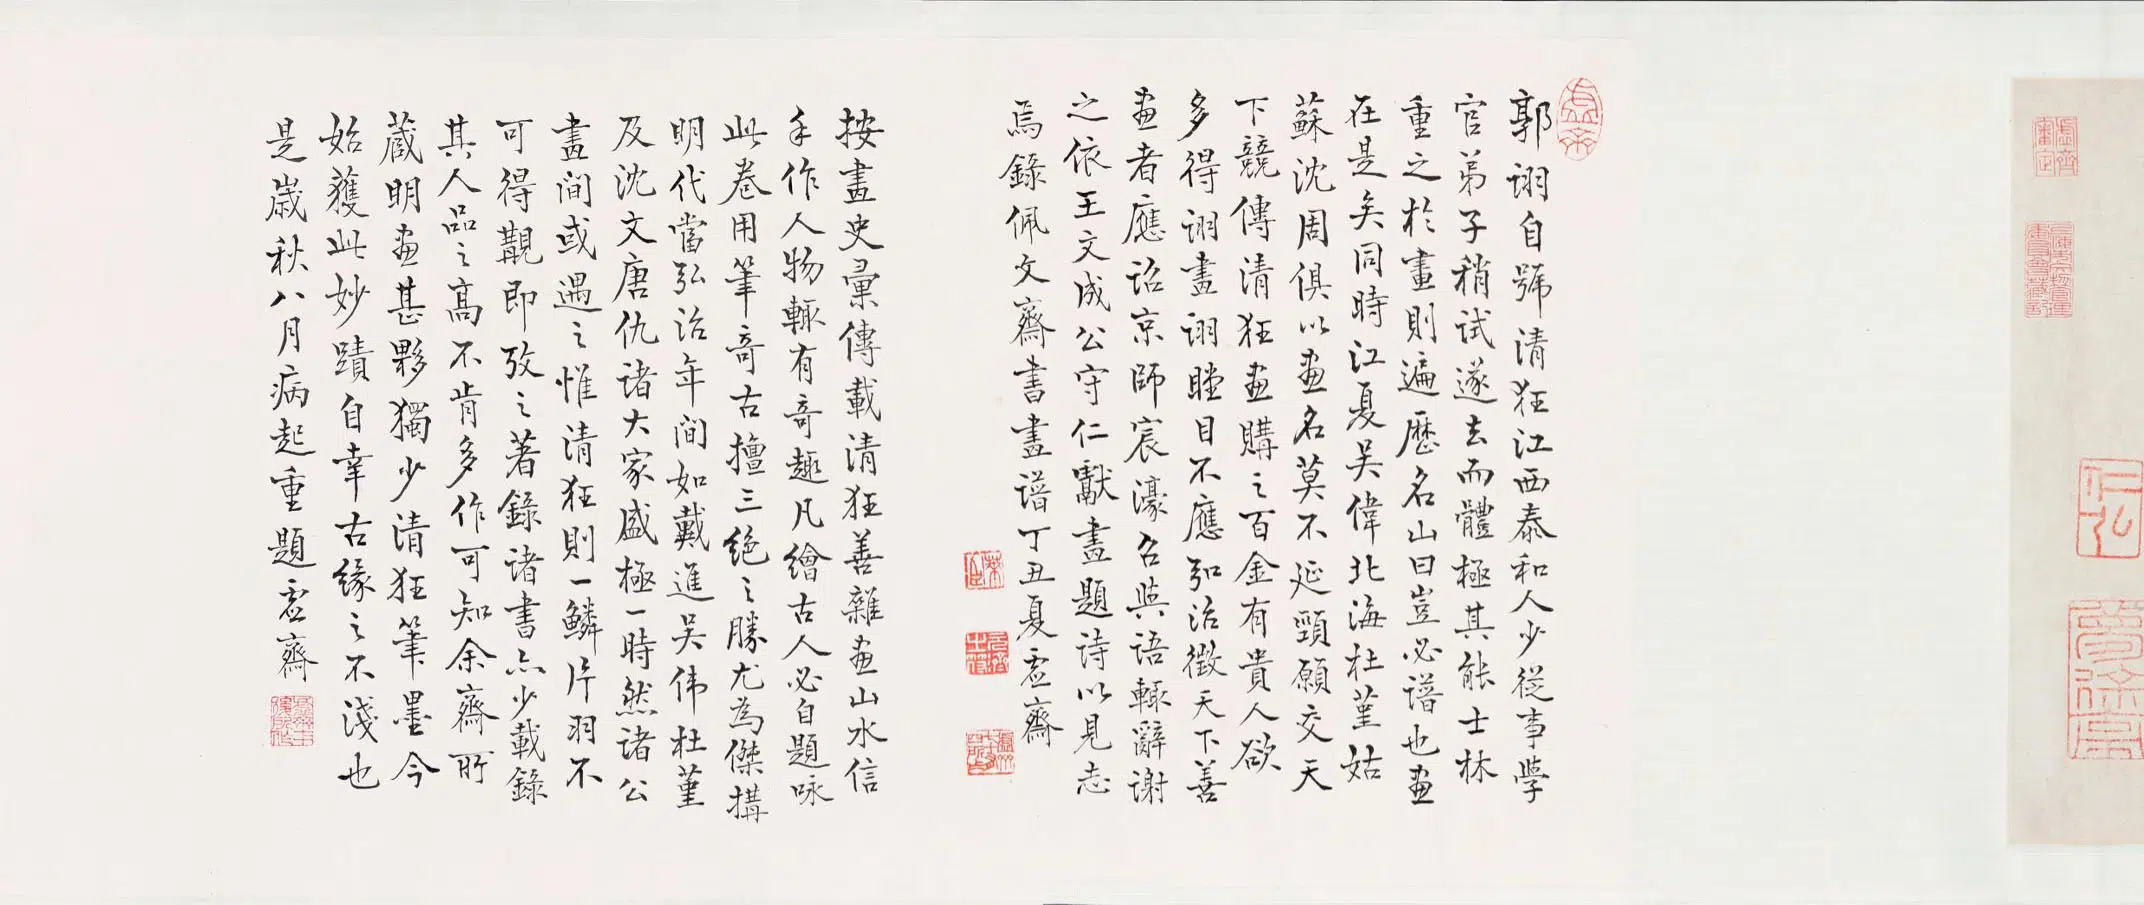 郭詡自號清狂江西泰和人少從事學
官弟子稍試遂去而體極其能士林
重之於畫則遍歷名山曰豈必譜也畫
在是矣同時江夏吳偉北海杜堇姑
蘇沈周俱以畫名莫不延頸願交天
下競傳清狂畫購之百金有貴人欲
多得詡畫詡瞠目不應弘治徵天下善
畫者應詔京師宸濠召與語輒辭謝
之依王文成公守仁獻畫題詩以見志
焉錄佩文齋書畫譜丁丑夏虛齋
按畫史彙傳載清狂善雜畫山水信
手作人物輒有奇趣凡繪古人必自題咏
此卷用筆奇古擅三絕之勝尤為傑搆
明代當弘治年間如戴進吳伟杜堇
及沈文唐仇諸大家盛極一時然諸公
畫間或遇之惟清狂則一鱗片羽不
可得覯即攷之著錄諸書亦少載錄
其人品之高不肯多作可知余齋所
藏明畫甚夥獨少清狂筆墨今
始獲此妙蹟自幸古緣之不淺也
是歲秋八月病起重題虛齋